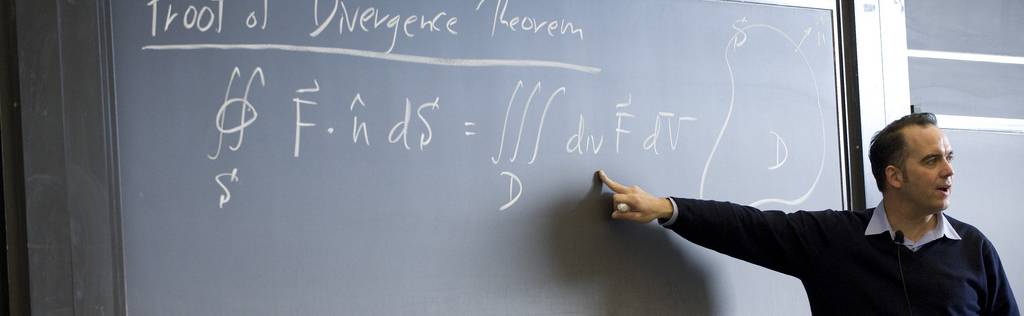 Proof of Divergence Theorem
∯ F⃗ · n̂ dS = ∭ div F⃗ dV
S D
S n
D